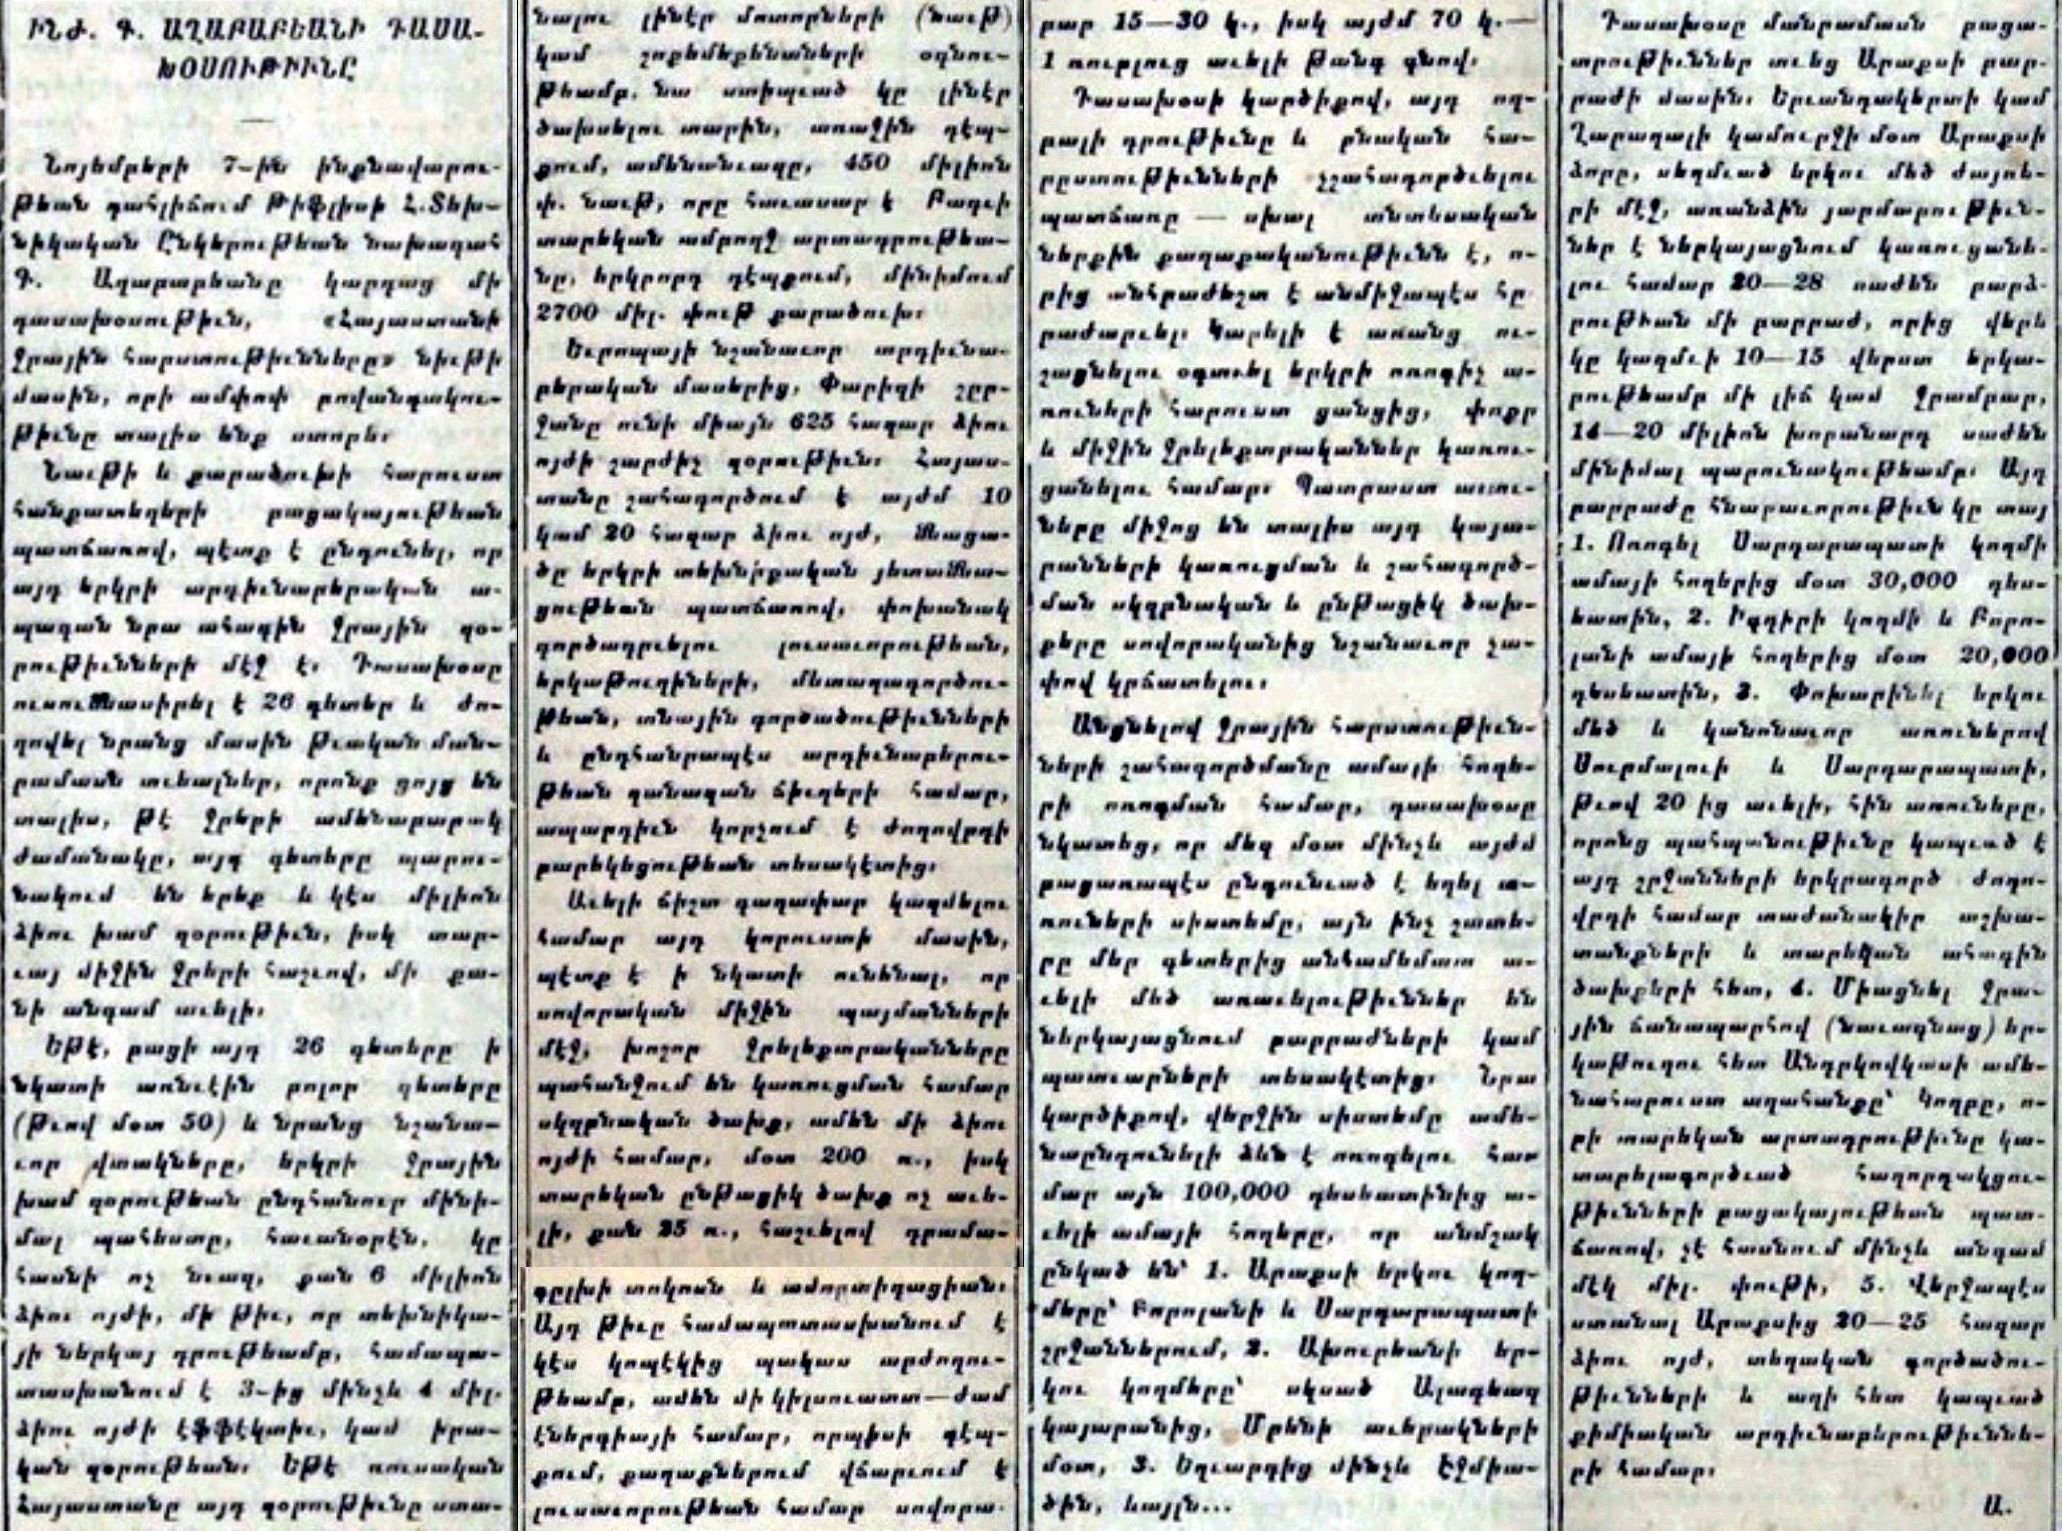 ԻՆԺ. Գ. ԱՂԱԲԱԲԵԱՆԻ ԴԱՍԱ-
ԽՕՍՈՒԹԻՒՆԸ
Նոյեմբերի 7-ին ինքնավարու-
թեան դահլիճում Թիֆլիսի Հ. Տեխ-
նիկական Ընկերութեան նախագահ
Գ. Աղաբաբեանը կարդաց մի
դասախօսութիւն, «Հայաստանի
ջրային հարստութիւնները» նիւթի
մասին, որի ամփոփ բովանդակու-
թիւնը տալիս ենք ստորեւ։
Նաւթի և քարածուխի հարուստ
հանքատեղերի բացակայութեան
պատճառով, պէտք է ընդունել, որ
այդ երկրի արդիւնաբերական ա-
պագան նրա ահագին ջրային զօ-
րութիւնների մէջ է։ Դասախօսը
ուսումնասիրել է 26 գետեր և ժո-
ղովել նրանց մասին թւական ման-
րամասն տւեալներ, որոնք ցոյց են
տալիս, թէ ջրերի ամենաբարակ
ժամանակը, այդ գետերը պարու-
նակում են երեք և կէս միլիոն
ձիու խամ զօրութիւն, իսկ տար-
ւայ միջին ջրերի հաշւով, մի քա-
նի անգամ աւելի։
Եթէ, բացի այդ 26 գետերը ի
նկատի առնւէին բոլոր գետերը
(թւով մօտ 50) և նրանց նշանա-
ւոր վտակները, երկրի ջրային
խամ զօրութեան ընդհանուր մինի-
մալ պահեստը, հաւանօրէն, կը
հասնի ոչ նւազ, քան 6 միլիոն
ձիու ոյժի, մի թիւ, որ տեխնիկա-
յի ներկայ դրութեամբ, համապա-
տասխանում է 3-ից մինչև 4 միլ.
ձիու ոյժի էֆֆէկտիւ, կամ իրա-
կան զօրութեան։ Եթէ ռուսական
Հայաստանը այդ զօրութիւնը ստա-
նալու լինէր մոտորների (նաւթ)
կամ շոքեմեքենաների օգնու-
թեամբ, նա ստիպւած կը լինէր
ծախսելու տարին, առաջին դէպ-
քում, ամենանւազը, 450 միլիոն
փ. նաւթ, որը հաւասար է Բագւի
տարեկան ամբողջ արտադրութեա-
նը, երկրորդ դէպքում, մինիմում
2700 միլ. փութ քարածուխ։
Եւրոպայի նշանաւոր արդիւնա-
բերական մասերից, Փարիզի շըր-
ջանը ունի միայն 625 հազար ձիու
ոյժի շարժիչ զօրութիւն։ Հայաս-
տանը շահագործում է այժմ 10
կամ 20 հազար ձիու ոյժ, մնացա-
ծը երկրի տեխնիքական յետամնա-
ցութեան պատճառով, փոխանակ
գործադրւելու լուսաւորութեան,
երկաթուղիների, մետաղագործու-
թեան, տնային գործածութիւնների
և ընդհանրապէս արդիւնաբերու-
թեան զանազան ճիւղերի համար,
ապարդիւն կորչում է ժողովրդի
բարեկեցութեան տեսակէտից։
Աւելի ճիշտ գաղափար կազմելու
համար այդ կորուստի մասին,
պէտք է ի նկատի ունենալ, որ
սովորական միջին պայմանների
մէջ, խոշոր ջրելեքտրականները
պահանջում են կառուցման համար
սկզբնական ծախք, ամեն մի ձիու
ոյժի համար, մօտ 200 ռ., իսկ
տարեկան ընթացիկ ծախք ոչ աւե-
լի, քան 25 ռ., հաշւելով դրամա-
գըլխի տոկոսն և ամորտիզացիան։
Այդ թիւը համապատասխանում է
կէս կոպէկից պակաս արժողու-
թեամբ, ամեն մի կիլուատտ—ժամ
էներգիայի համար, որպիսի դէպ-
քում, քաղաքներում վճարւում է
լուսաւորութեան համար սովորա-
բար 15—30 կ., իսկ այժմ 70 կ.—
1 ռուբլուց աւելի թանգ գնով։
Դասախօսի կարծիքով, այդ ող-
բալի դրութիւնը և բնական հա-
րըստութիւնների չշահագործւելու
պատճառը — սխալ տնտեսական
ներքին քաղաքականութիւնն է, ո-
րից անհրաժեշտ է անմիջապէս հը-
րաժարւել։ Կարելի է առանց ու-
շացնելու օգտւել երկրի ոռոգիչ ա-
ռուների հարուստ ցանցից, փոքր
և միջին ջրելեքտրականներ կառու-
ցանելու համար։ Պատրաստ առու-
ները միջոց են տալիս այդ կայա-
րանների կառուցման և շահագործ-
ման սկզբնական և ընթացիկ ծախ-
քերը սովորականից նշանաւոր չա-
փով կրճատելու։
Անցնելով ջրային հարստութիւն-
ների շահագործմանը ամայի հողե-
րի ոռոգման համար, դասախօսը
նկատեց, որ մեզ մօտ մինչև այժմ
բացառապէս ընդունւած է եղել ա-
ռուների սիստեմը, այն ինչ շատե-
րը մեր գետերից անհամեմատ ա-
ւելի մեծ առաւելութիւններ են
ներկայացնում բարրաժների կամ
պատւարների տեսակէտից։ Նրա
կարծիքով, վերջին սիստեմը ամե-
նաընդունելի ձևն է ոռոգելու հա-
մար այն 100,000 դեսեատինից ա-
ւելի ամայի հողերը, որ անմշակ
ընկած են՝ 1. Արաքսի երկու կող-
մերը՝ Բորոլանի և Սարդարապատի
շրջաններում, 2. Ախուրեանի եր-
կու կողմերը՝ սկսած Ալագեազ
կայարանից, Մրենի աւերակների
մօտ, 3. Եղւարդից մինչև Էջմիա-
ծին, ևայլն...
Դասախօսը մանրամասն բացա-
տրութիւններ տւեց Արաքսի բար-
րաժի մասին։ Երւանդակերտի կամ
Ղարաղալի կամուրջի մօտ Արաքսի
ձորը, սեղմւած երկու մեծ ժայռե-
րի մէջ, առանձին յարմարութիւն-
ներ է ներկայացնում կառուցանե-
լու համար 20—28 սաժեն բարձ-
րութեան մի բարրաժ, որից վերև
կը կազմւի 10—15 վերստ երկա-
րութեամբ մի լիճ կամ ջրամբար,
14—20 միլիոն խորանարդ սաժեն
մինիմալ պարունակութեամբ։ Այդ
բարրաժը հնարաւորութիւն կը տայ
1. Ոռոգել Սարդարապատի կողմի
ամայի հողերից մօտ 30,000 դես-
եատին, 2. Իգդիրի կողմի և Բորո-
լանի ամայի հողերից մօտ 20,000
դեսեատին, 3. Փոխարինել երկու
մեծ և կանոնաւոր առուներով
Սուրմալուի և Սարդարապատի,
թւով 20 ից աւելի, հին առուները,
որոնց պահպանութիւնը կապւած է
այդ շրջանների երկրագործ ժողո-
վրդի համար տաժանակիր աշխա-
տանքների և տարեկան ահագին
ծախքերի հետ, 4. Միացնել ջրա-
յին ճանապարհով (նաւագնաց) եր-
կաթուղու հետ Անդրկովկասի ամե-
նահարուստ աղահանքը՝ Կողբը, ո-
րի տարեկան արտադրութիւնը կա-
տարելագործւած հաղորդակցու-
թիւնների բացակայութեան պատ-
ճառով, չէ հասնում մինչև անգամ
մէկ միլ. փութի, 5. Վերջապէս
ստանալ Արաքսից 20—25 հազար
ձիու ոյժ, տեղական գործածու-
թիւնների և աղի հետ կապւած
քիմիական արդիւնաբերութիւննե-
րի համար։
Ա.